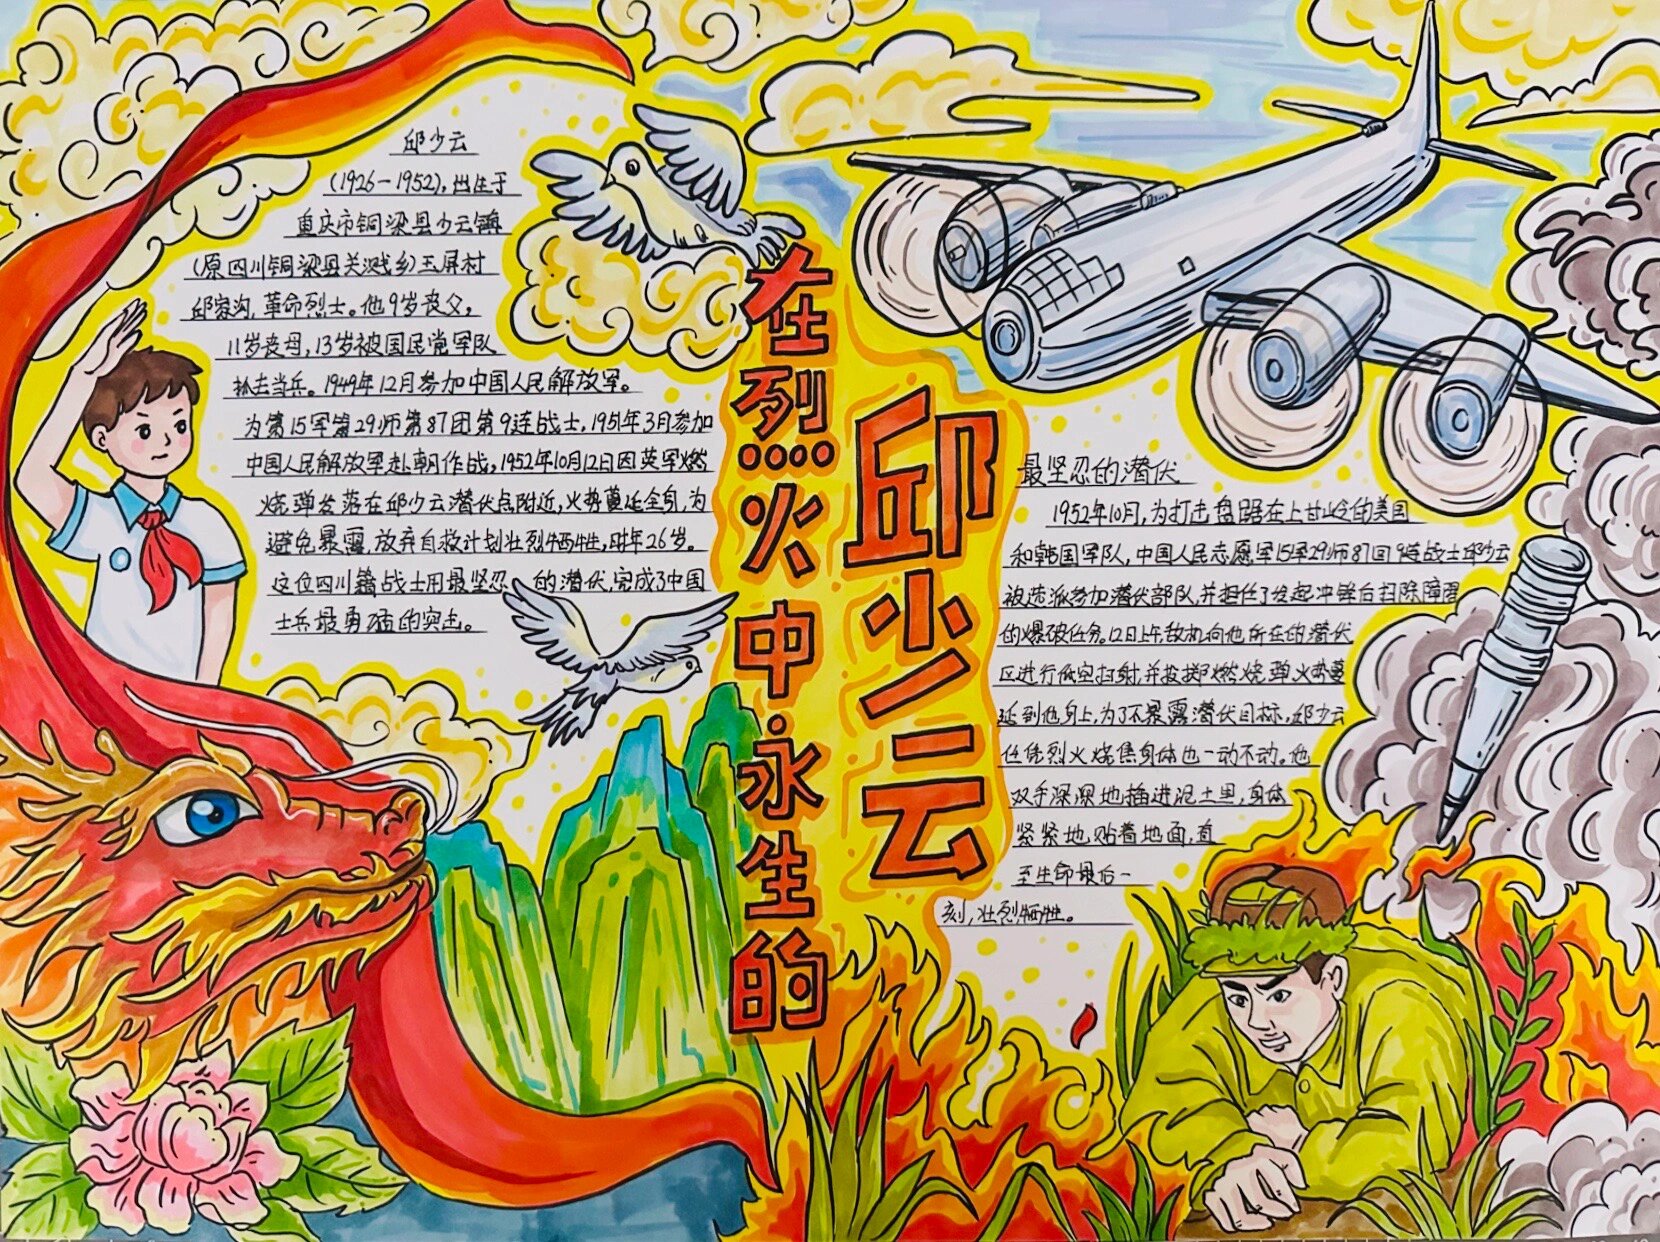 邱少云
(1926-1952),出生于
重庆市铜梁县少云镇
(原四川铜梁县关溅乡)玉屏村
邱家沟,革命烈士。他9岁丧父,
11岁丧母,13岁被国民党军队
抓去当兵。1949年12月参加中国人民解放军。
为第15军第29师第87团第9连战士,1951年3月参加
中国人民解放军赴朝作战,1952年10月12日因英军燃
烧弹发落在邱少云潜伏点附近,火势蔓延全身,为
避免暴露,放弃自救计划壮烈牺牲,时年26岁。
这位四川籍战士用最坚忍的潜伏,完成了中国
士兵最勇猛的突击。
在烈火中·永生的
邱少云
最坚忍的潜伏
1952年10月,为打击盘踞在上甘岭的美国
和韩国军队,中国人民志愿军15军29师87团9连战士邱少云
被选派参加潜伏部队,并担任了发起冲锋后扫除障碍
的爆破任务。12日上午敌机向他所在的潜伏
区进行低空扫射,并投掷燃烧弹火势蔓
延到他身上,为了不暴露潜伏目标,邱少云
任凭烈火烧焦身体也一动不动。他
双手深深地插进泥土里,身体
紧紧地贴着地面,直
至生命最后一
刻,壮烈牺牲。